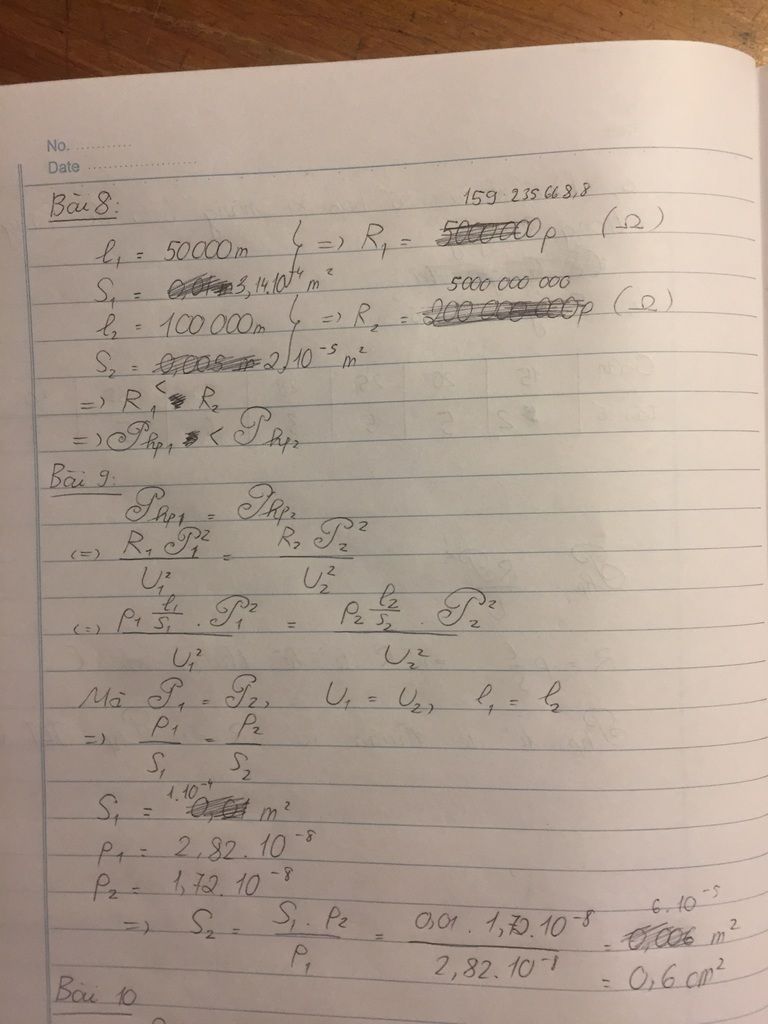 No. ...........
Date ......................
Bài 8:
159 235 668,8
l₁ = 50000m } => R₁ = 5000000ρ (Ω)
S₁ = 3,14.10⁻⁴ m²
5000 000 000
l₂ = 100 000m } => R₂ = 200 000 000ρ (Ω)
S₂ = 0,005 m 2.10⁻⁵ m²
=> R₁ < R₂
=> 𝒫hp₁ < 𝒫hp₂
Bài 9:
𝒫hp₁ = 𝒫hp₂
(=) R₁ 𝒫₁² / U₁² = R₂ 𝒫₂² / U₂²
(=) ρ₁ l₁/S₁ . 𝒫₁² / U₁² = ρ₂ l₂/S₂ . 𝒫₂² / U₂²
Mà 𝒫₁ = 𝒫₂, U₁ = U₂, l₁ = l₂
=> ρ₁ / S₁ = ρ₂ / S₂
1.10⁻⁴
S₁ = 0,01 m²
ρ₁ = 2,82.10⁻⁸
ρ₂ = 1,72.10⁻⁸
6.10⁻⁵
=> S₂ = S₁ . ρ₂ / ρ₁ = 0,01 . 1,72.10⁻⁸ / 2,82.10⁻⁸ = 0,006 m²
= 0,6 cm²
Bài 10